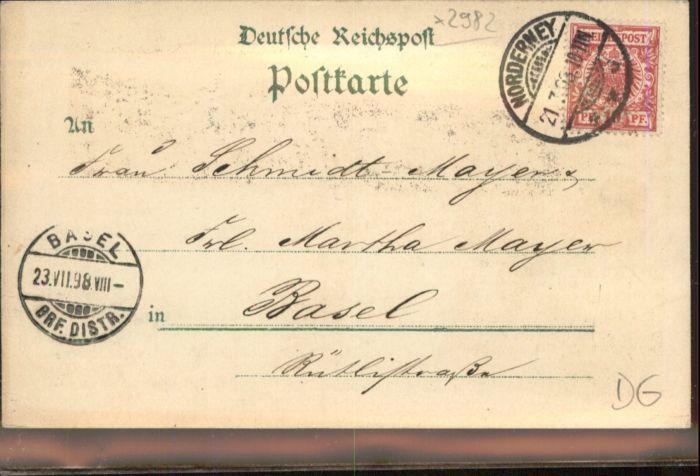 x2982
Deutsche Reichspost
Postkarte
NORDERNEY
21.7.98
REICHSPOST
PF.
An
Frau Schmidt-Mayer &
Frl. Martha Mayer
in Basel
Rütlistraße
BASEL
23.VII.98.VIII–
BRF. DISTR.
DG